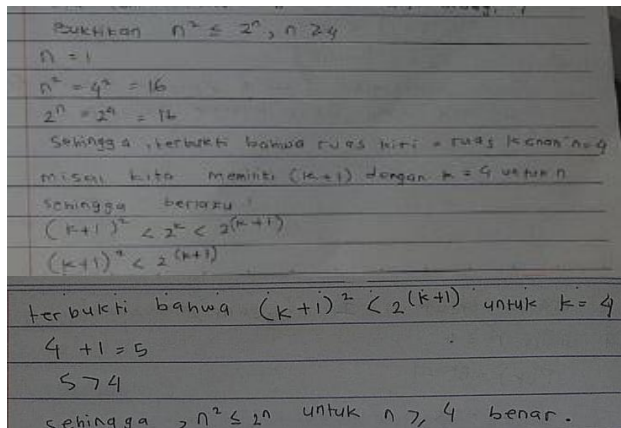 Buktikan n² ≤ 2ⁿ, n ≥ 4
n = 1
n² = 4² = 16
2ⁿ = 2⁴ = 16
Sehingga, terbukti bahwa ruas kiri = ruas kanan n=4
misal kita memiliki (k+1) dengan k = 4 untuk n
sehingga berlaku
(k+1)² < 2ᵏ < 2⁽ᵏ⁺¹⁾
(k+1)² < 2⁽ᵏ⁺¹⁾
terbukti bahwa (k+1)² < 2⁽ᵏ⁺¹⁾ untuk k = 4
4 + 1 = 5
5 > 4
sehingga, n² ≤ 2ⁿ untuk n ≥ 4 benar.